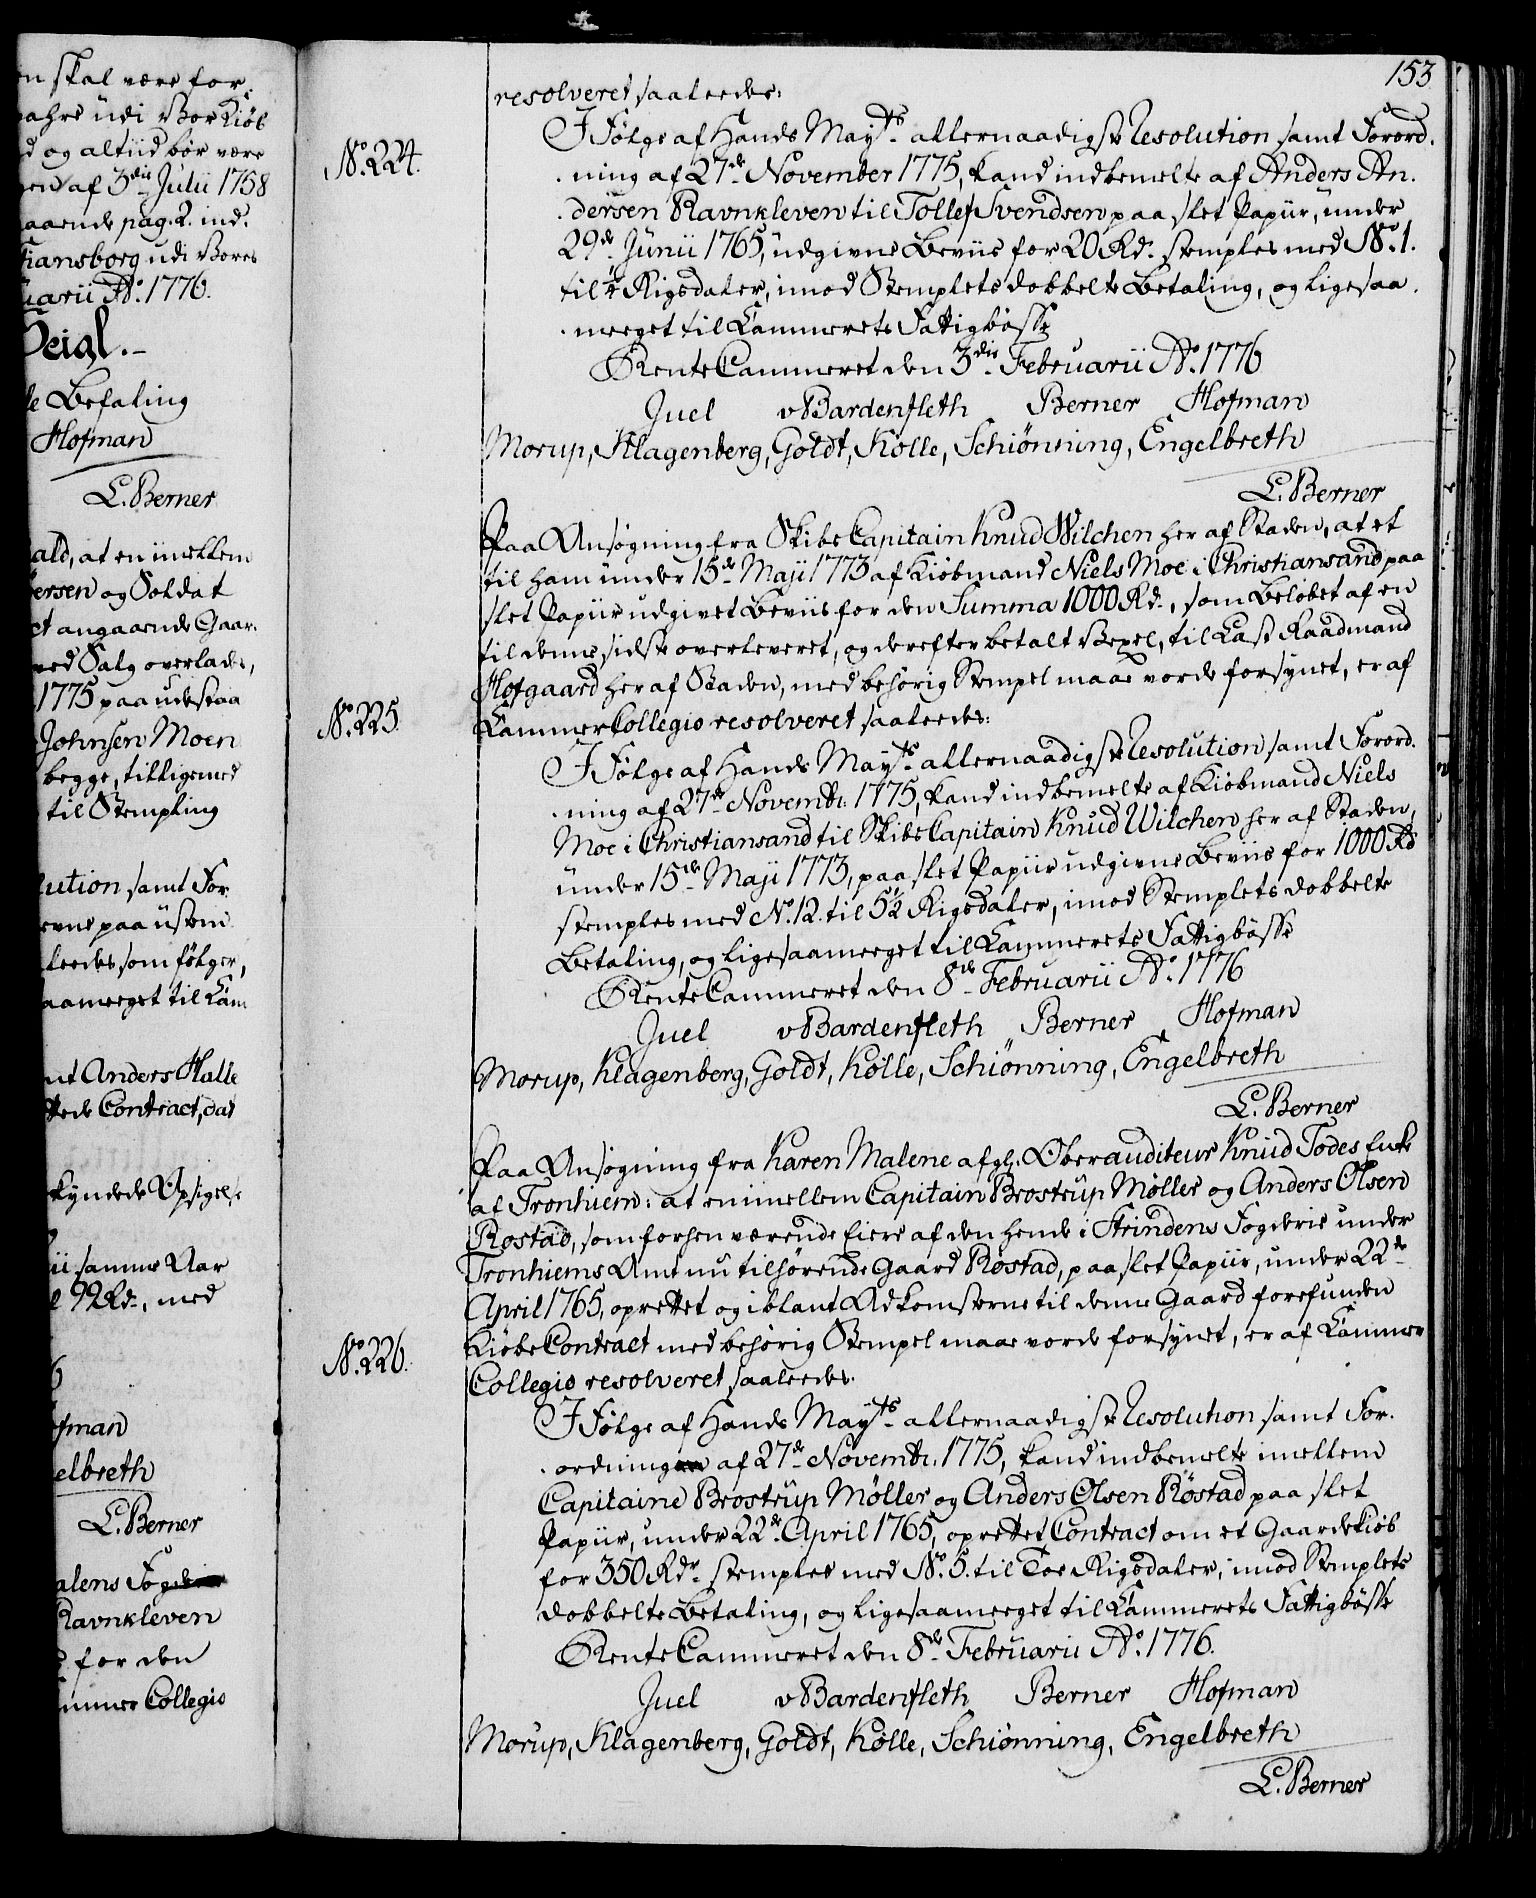 en skal være for,
ahre udi Vor Kiøb
d og altiid bør være
gen af 3die Julii 1758
gaaende pag. 2. ind.
tiansborg udi Vores
uarii Ao. 1776.
Seigl.
le Befaling
Hofman
L. Berner
ald, at en imellem
ersen og Soldat
ct angaaende Gaar.
ved Salg overlade,
1775 paa udestaa
Johnsen Moen
begge, tilligemed
til Stempling
lution samt For
evne paa ustem
leedes som følger,
aameeget til Cam
nt Anders Halle
ttede Contract, dat
skyndede Opsigelse
ii samme Aar
l 99 Rdr., med
6
ofman
elbreth
L. Berner
alens Fogderie
Ravnkleven
for den
ammer Collegio
153
resolveret saaledes:
No. 224.
I Følge af Hands Mayts. allernaadigste Resolution samt Forord.
ning af 27de November 1775, kand indbemelte af Anders An.
dersen Ravnkleven til Tollef Svendsen paa slet Papiir, under
29de Junii 1765, udgivne Beviis for 20 Rdr. stemples med No. 1.
til 1/4 Rigsdaler, imod Stemplets dobbelte Betaling, og ligesaa
meeget til Cammerets Fattigbøsse
Rente Cammeret den 3die Februarii Ao. 1776
Juel vBardenfleth Berner Hofman
Morup, Klagenberg, Goldt, Kølle, Schiønning, Engelbreth
L. Berner
Paa Ansøgning fra Skibs Capitain Knud Wilchen her af Staden, at et
til ham under 15de Maji 1773 af Kiøbmand Niels Moe i Christiansand paa
slet Papiir udgivet Beviis for den Summa 1000 Rdr., som Beløbet af en
til denne sidste overleveret, og derefter betalt Vexel, til Last Raadmand
Hofgaard her af Staden, med behørig Stempel maae vorde forsynet, er af
No. 225.
Cammer Collegio resolveret saaledes:
I Følge af Hands Mayts. allernaadigste Resolution samt Forord.
ning af 27de Novembr. 1775, kand indbemelte af Kiøbmand Niels
Moe i Christiansand til Skibs Capitain Knud Wilchen her af Staden,
under 15de Maji 1773, paa slet Papiir udgivne Beviis for 1000 Rd
stemples med No. 12. til 5 1/2 Rigsdaler, imod Stemplets dobbelte
Betaling, og ligesaameeget til Cammerets Fattigbøsse
Rente Cammeret den 8de Februarii Ao. 1776
Juel vBardenfleth Berner Hofman
Morup, Klagenberg, Goldt, Kølle, Schiønning, Engelbreth
L. Berner
Paa Ansøgning fra Karen Malene afgl. Oberauditeur Knud Todes Enke
af Tronhiem: at en imellem Capitain Brostrup Møller og Anders Olsen
Røstad, som forhen værende Eiere af den hende i Strindens Fogderie under
Tronhiems Amt nu tilhørende Gaard Røstad, paa slet Papiir, under 22de
April 1765, oprettet og iblant Adkomsterne til denne Gaard forefunden
Kiøbe Contract med behørig Stempel maae vorde forsynet, er af Cammer
No. 226.
Collegio resolveret saaledes.
I Følge af Hands Mayts. allernaadigste Resolution samt For.
ordning af 27de Novembr. 1775, kand indbemelte imellem
Capitaine Brostrup Møller og Anders Olsen Røstad paa slet
Papiir, under 22de April 1765, oprettet Contract om et Gaardekiøb
for 350 Rdr. stemples med No. 5. til Toe Rigsdaler, imod Stemplets
dobbelte Betaling, og ligesaameeget til Cammerets Fattigbøsse
Rente Cammeret den 8de Februarii Ao. 1776.
Juel vBardenfleth Berner Hofman
Morup, Klagenberg, Goldt, Kølle, Schiønning, Engelbreth
L. Berner